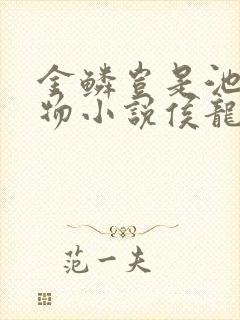 金鳞岂是池
物小說侯龍
范一夫